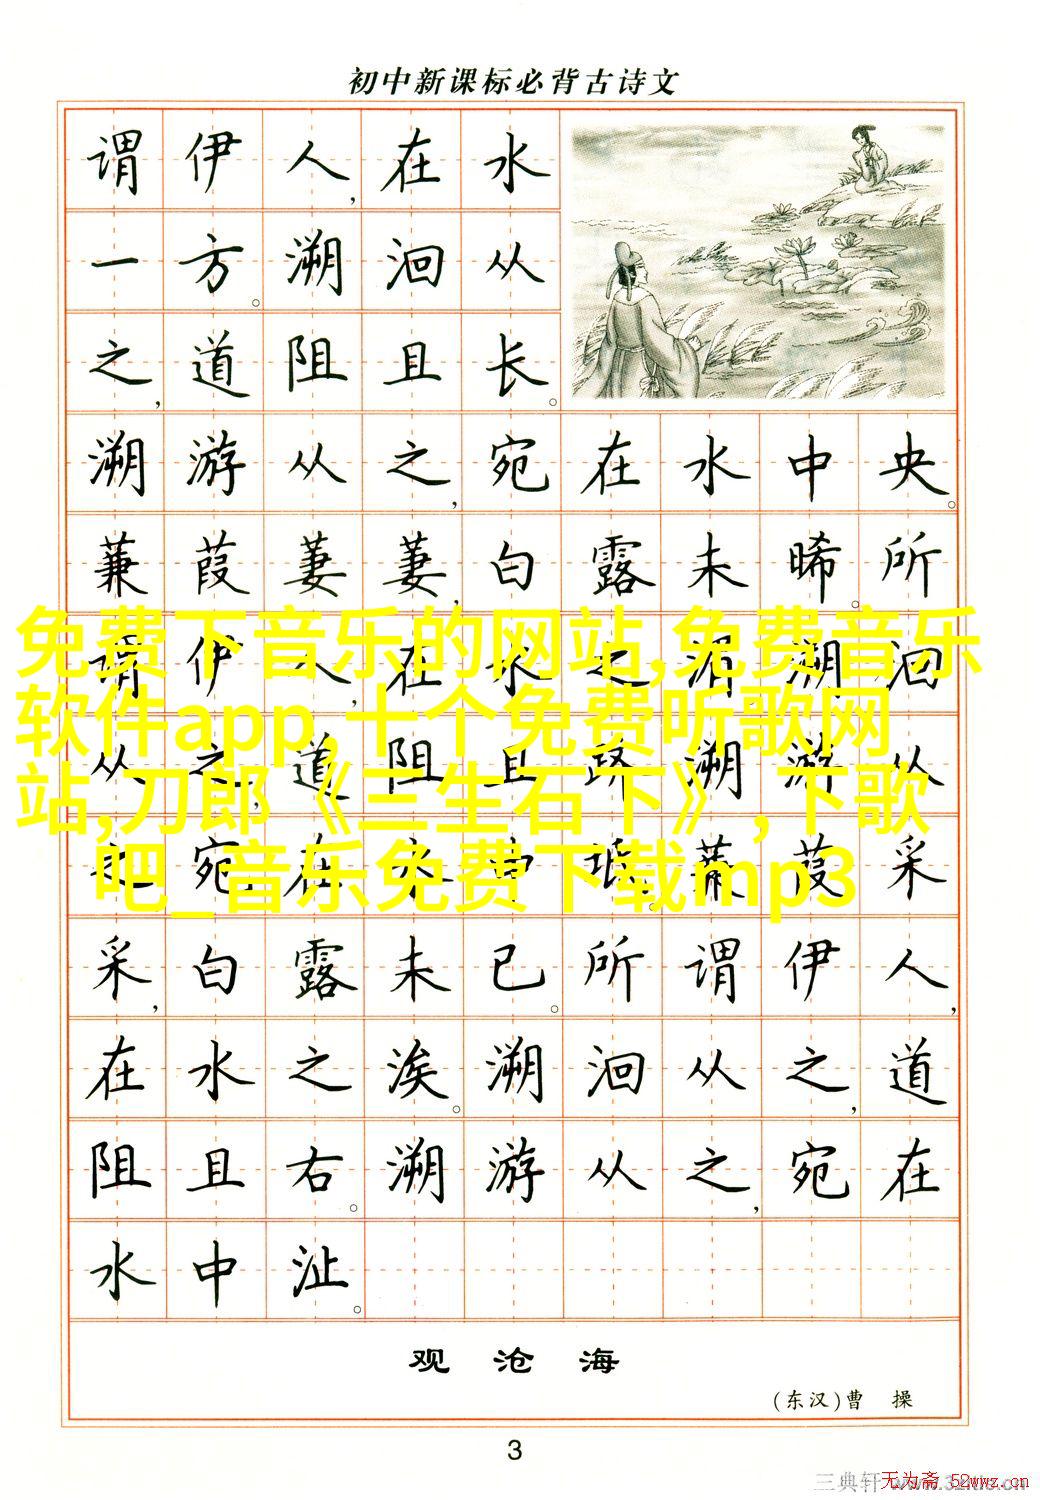 初中新课标必背古诗文
谓伊人,在水
一方。溯洄从
之,道阻且长。
溯游从之,宛在水中央。
蒹葭萋萋,白露未晞。所
谓伊人,在水之湄。溯洄
从之,道阻且跻。溯游从
之,宛在水中坻。蒹葭采
采,白露未已。所谓伊人,
在水之涘。溯洄从之,道
阻且右。溯游从之,宛在
水中沚。
免费下音乐的网站,免费音乐
软件app,十个免费听歌网
站,刀郎《三生石下》,下歌
吧_音乐免费下载mp3
观沧海
(东汉)曹操
3
三典轩
无为斋 52wwz.cn